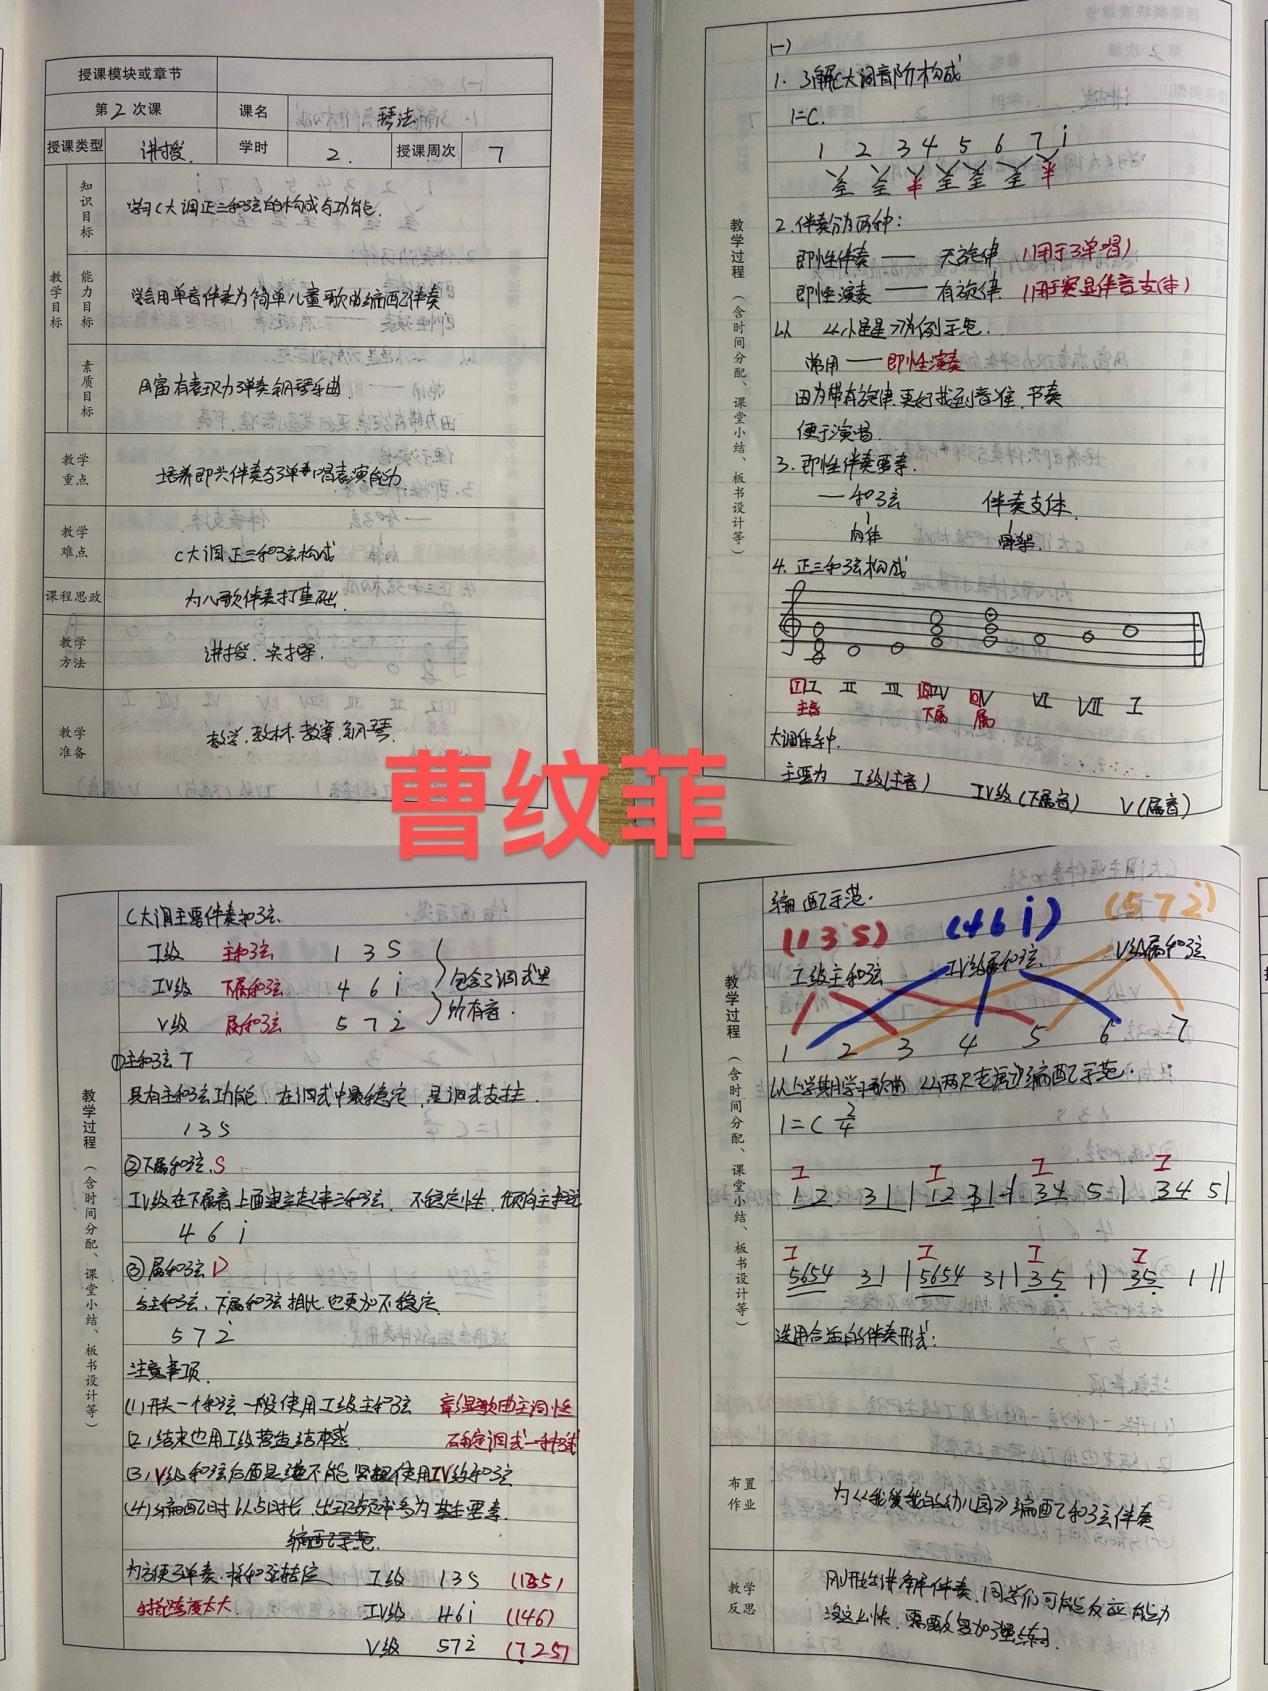 授课模块或章节
第2次课 课名 琴法
授课类型 讲授. 学时 2. 授课周次 7
教学目标
知识目标 学习C大调正三和弦的构成与功能.
能力目标 学会用单音伴奏为简单儿童歌曲编配伴奏
素质目标 用富有表现力弹奏钢琴乐曲.
教学重点 培养即兴伴奏与弹唱表演能力.
教学难点 C大调正三和弦构成
课程思政 为儿歌伴奏打基础.
教学方法 讲授.
教学准备 教学.教材.教室.钢琴.
教学过程(含时间分配、课堂小结、板书设计等)
(一)
1. 了解C大调音阶构成
1=C.
1 2 3 4 5 6 7 i
全 全 半 全 全 全 半
2.伴奏分为两种:
即性伴奏 —— 无旋律 (用于弹唱)
即性演奏 —— 有旋律.
以《小星星》为例示范.
常用 —— 即性演奏
因为带有旋律更好找到音准.节奏
便于演唱.
3. 即性伴奏要素.
—和弦 伴奏支体.
肉体 骨架.
4. 正三和弦构成
I II III IV V VI VII I
主音 下属 属
大调体系中.
主要为 I级(主音) IV级(下属音) V(属音)
曹纹菲
教学过程(含时间分配、课堂小结、板书设计等)
C大调主要伴奏和弦.
I级 主和弦 1 3 5
IV级 下属和弦 4 6 i
V级 属和弦 5 7 2̇
包含了调式里所有音.
①主和弦 T
具有主和弦功能.在调式中最稳定,是调式支柱.
1 3 5
②下属和弦.S
IV级在下属音上面建立起来三和弦. 不稳定性.
4 6 i
③属和弦 D
与主和弦、下属和弦相比.也更加不稳定.
5 7 2̇
注意事项.
(1)开头一个和弦一般使用I级主和弦
确定调式一种和弦
(2)结束也用I级营造结束感.
(3)V级和弦后面是绝不能 使用IV级和弦
(4)编配时以占时长,出现频率多为基主要素.
编配示范.
为方便弹奏.将和弦转位. I级 1 3 5 (135)
IV级 4 6 i (146)
V级 5 7 2̇ (7̣25)
教学过程(含时间分配、课堂小结、板书设计等)
编配示范.
(1 3 5) (4 6 i) (5 7 2̇)
I级主和弦 IV级属和弦. V级属和弦
1 2 3 4 5 6 7
以上学期学习歌曲《两只老虎》编配示范.
1=C 2/4
I I I I
12 31 | 12 31 | 34 5 | 34 5 |
I I I I
5654 31 | 5654 31 | 35̣ 1 | 35̣ 1 ||
选用合适的伴奏形式:
布置作业 为《我爱我的幼儿园》编配和弦伴奏
教学反思 刚开始讲解伴奏.同学们可能反应能力
没这么快.需要反复加强练习.